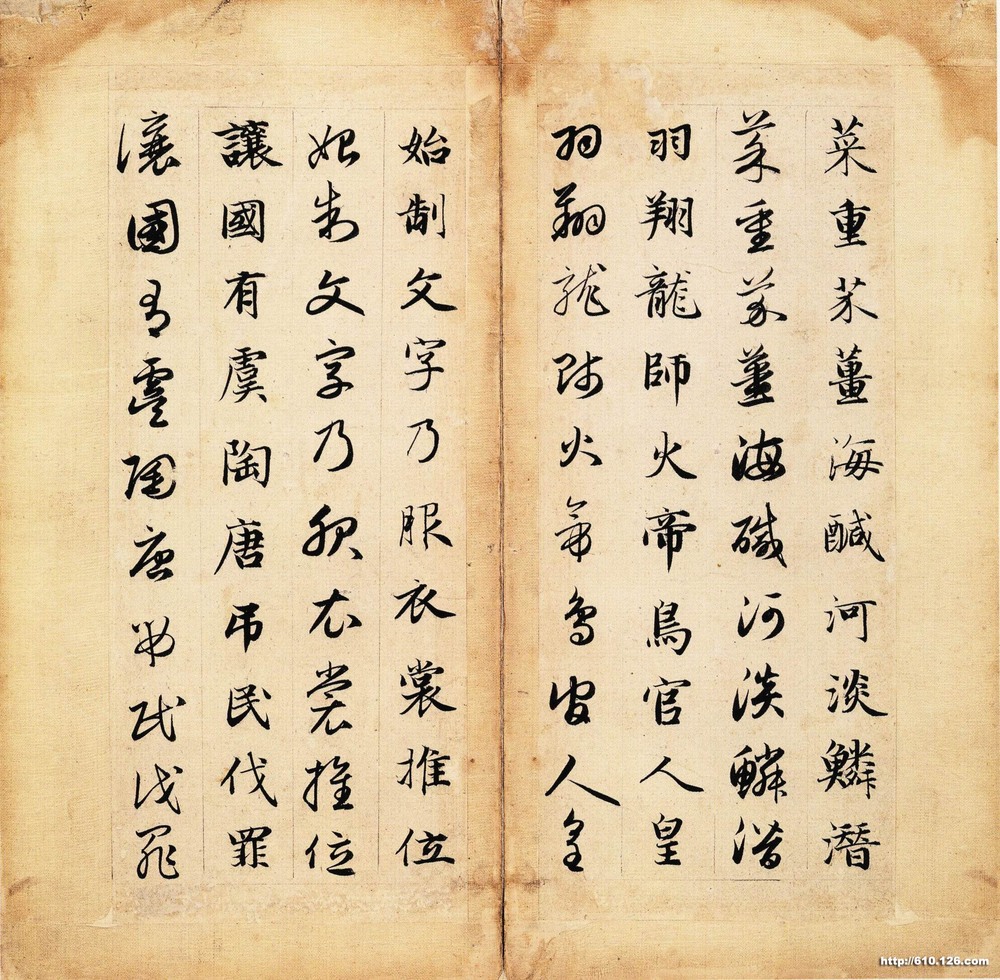 菜重芥薑海醎河淡鱗潛
菜重芥薑海醎河淡鱗潛
羽翔龍師火帝鳥官人皇
羽翔龍師火帝鳥官人皇
始制文字乃服衣裳推位
始制文字乃服衣裳推位
讓國有虞陶唐弔民伐罪
讓國有虞陶唐弔民伐罪
http://610.126.com